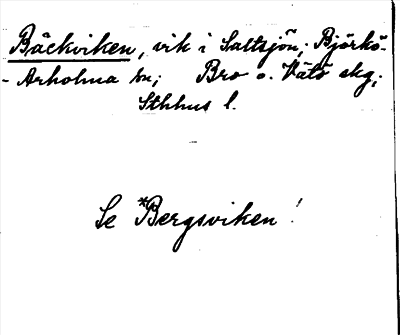 Bäckviken, vik i Saltsjön; Björkö-
- Arholma kn; Bro o. Vätö skg;
Sthhus l.
Se *Bergsviken!